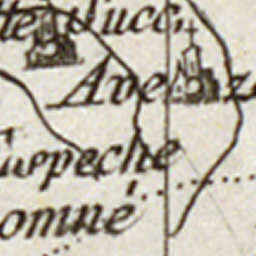 te Succ.
Ave z
uspeche
omné